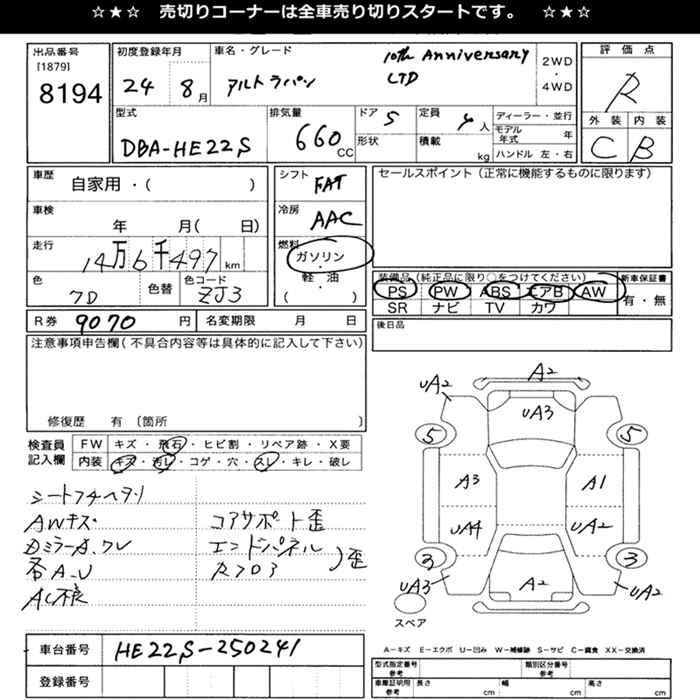 ☆★☆ 売切りコーナーは全車売り切りスタートです。 ☆★☆
出品番号
[1879]
8194
初度登録年月
24 8月
車名・グレード
アルトラパン 10th Anniversary
LTD
2WD
・
4WD
評価点
R
外装 内装
C B
型式
DBA-HE22S
排気量
660 CC
ドア 5
形状
定員 4人
積載 kg
ディーラー・並行
モデル年式 年
ハンドル 左・右
車歴
自家用・( )
車検
年 月( 日)
走行
14万6千497 km
色
色替
色コード
ZJ3
シフト FAT
冷房 AAC
燃料
ガソリン
・
軽・油
( )
セールスポイント(正常に機能するものに限ります)
装備品(純正品に限り○をつけてください)
PS PW ABS エアB AW
SR ナビ TV カワ
新車保証書
有・無
R券 9070 円
名変期限 月 日
後日品
注意事項申告欄(不具合内容等は具体的に記入して下さい)
修復歴 有 〔箇所 〕
検査員
記入欄
FW キズ・飛石・ヒビ割・リペア跡・X要
内装 キズ・汚レ・コゲ・穴・スレ・キレ・破レ
AWキズ
コアサポート歪
エンドパネル
歪
各A.U
AC不良
A2
UA2
UA3
5
5
A3
A1
UA4
UA2
3
3
UA3
A2
UA2
スペア
A-キズ E-エクボ U-凹み W-補修跡 S-サビ C-腐食 XX-交換済
車台番号
HE22S-250241
登録番号
型式指定番号
参考
類別区分番号
参考
車庫証明用
参考
長さ cm
幅 cm
高さ cm